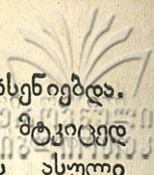 სენიებდა.
მტკიცედ
ასული